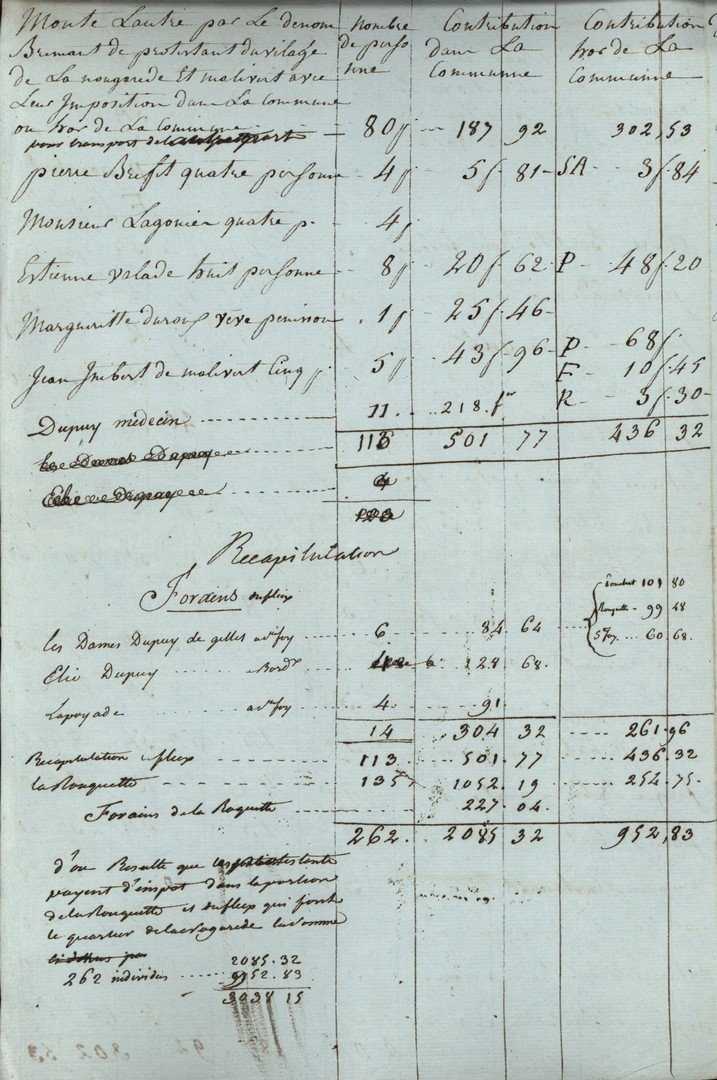 Monte Lautre par Le denom nombre Contribution Contribution
Brement de protestant du vilage de perso dans La hors de La
de La nougarede Et malivert avec nne Communne Communne
Leur Imposition dans La commune
ou hors de La commune 80 187 92 302,53
pour transport de la
pierre Brefit quatre personne 4 5 f. 81 SA 3 f. 84
Monsieur Lagonier quatre p 4
Estienne valade huit personne 8 20 f. 62 P 48 f. 20
Margueritte durous veve penisson 1 25 f. 46
Jean Imbert de malivert Cinq p 5 43 f. 96 P 68 f.
F 10 f. 45
Dupuy medecin 11 218. f R 3 f. 30
113 501 77 436 32
4
Recapitulation
Forains
les Dames Dupuy de gelles a Ste foy 6 84 64 101 80
99 48
Ste foy 60 68
Elie Dupuy Bord.x 4 128 68
Lapoyade a Ste foy 4 91
14 304 32 261.96
Recapitulation 113 501.77 436.32
la Rouquette 135 1052.19 254.75
Forains de la Roquette 227.04
262 2085 32 952,83
d'ou Resulte que les protestents
payent d'impot dans la portion
de la Rouquette et qui font
le quartier de la nogarede la somme
2085.32
262 individus 952.83
3038 15